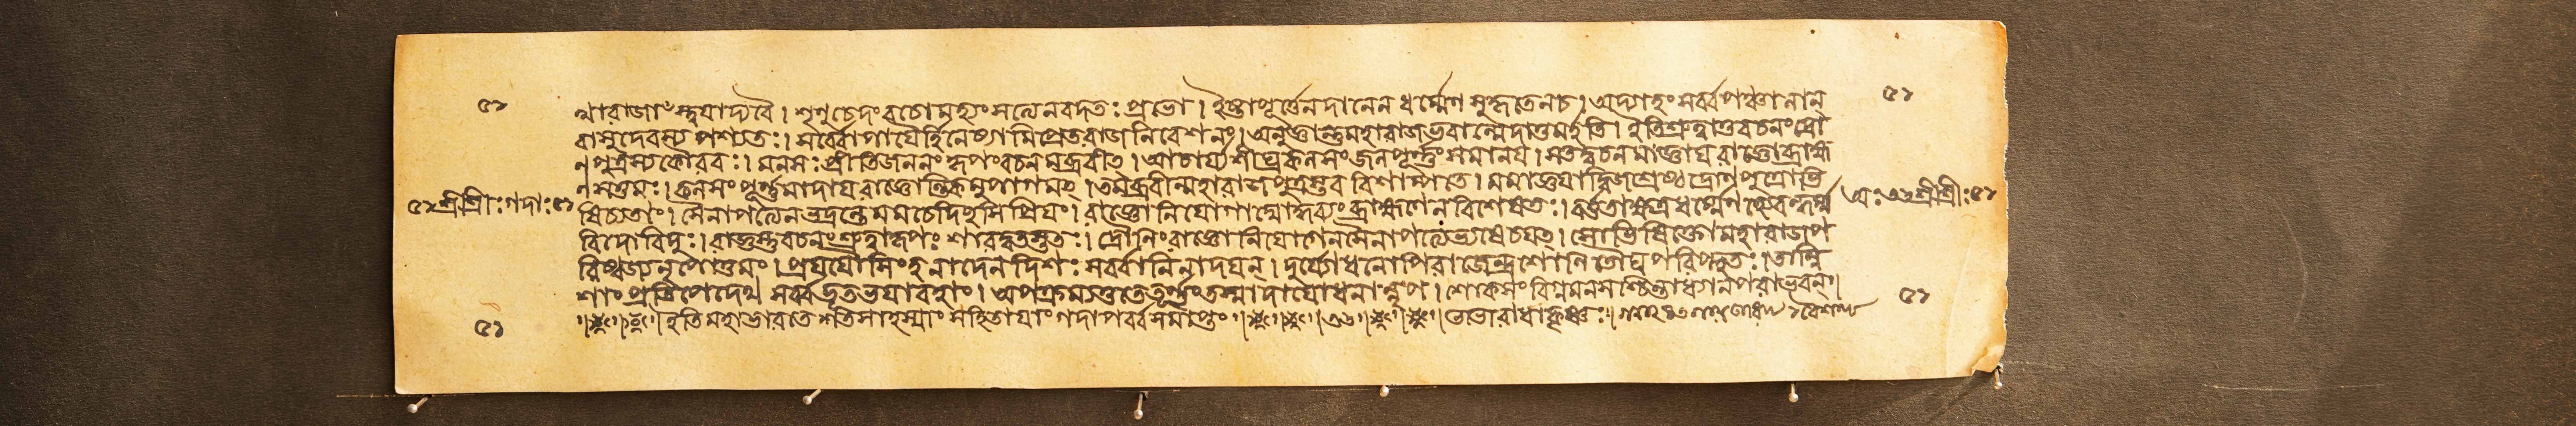 ৫১
৫১
ত্থারাজাꣳস্তুযাদ্যবৈ। শৃণুচেদংবচোমহ্যং সত্যেনবদতঃ প্রভো। ইষ্টাপূর্ত্তেনদানেন ধর্ম্মেণ সুকৃতেনচ। অদ্যাহং সর্ব্বপঞ্চালান্
বাসুদেবস্য পশ্যতঃ। সর্ব্বোপাযৈর্হিনেষ্যামিপ্রেতরাজনিবেশনং। অনুজ্ঞান্তুমহারাজভবান্মেদাতুমর্হতি। ইতিশ্রুত্বাতুবচনংদ্রো
ণপুত্রস্যকৌরবঃ। মনসঃপ্রীতিজননং কৃপংবচনমব্রবীৎ। আচার্য্যশীঘ্রংকলসংজলপূর্ণ্ণংসমানয। সতদ্বচনমাজ্ঞাযরাজ্ঞোব্রাহ্ম
ণসত্তমঃ। কলসংপূর্ণ্ণমাদাযরাজ্ঞোন্তিকমুপাগমৎ। তমব্রবীন্মহারাজপুত্রস্তব বিশাম্পতে। মমাজ্ঞযাদ্বিজশ্রেষ্ঠদ্রোণপুত্রোভি
৫১শ্রীশ্রীঃগদাঃ৫১
ষিচ্যতাং। সৈনাপত্যেনভদ্রন্তেমমচেদিচ্ছসিপ্রিযং। রাজ্ঞোনিযোগাদ্যোদ্ধব্যংব্রাহ্মণেনবিশেষতঃ। বর্ত্ততাক্ষত্রধর্ম্মেণহ্যেবন্ধর্ম্ম
শ্রীশ্রীঃ৫১
বিদোবিদুঃ। রাজ্ঞস্তুবচনংশ্রুত্বাকৃপঃ শারদ্বতস্তুতঃ। দ্রৌণিংরাজ্ঞোনিযোগেনসৈনাপত্যেভ্যষেচযৎ। সোভিষিক্তোমহারাজপ
রিষ্বজ্যনৃপোত্তমং। প্রযযৌসিংহনাদেনদিশঃ সর্ব্বানিনাদযন্। দুর্য্যোধনোপিরাজেন্দ্রশোণিতৌঘপরিপ্লুতঃ। তান্নি
শাংপ্রতিপেদেথ সর্ব্বভূতভযাবহাং। অপক্রম্যতুতেতূর্ণ্ণংতস্মাদাযোধনান্নৃপ। শোকসংবিগ্নমনসশ্চিন্তাধ্যানপরাভবন্।
ইতিমহাভারতে শতসাহস্র্যাং সংহিতাযাং গদাপর্ব্বসমাপ্তং
৫১
৫১